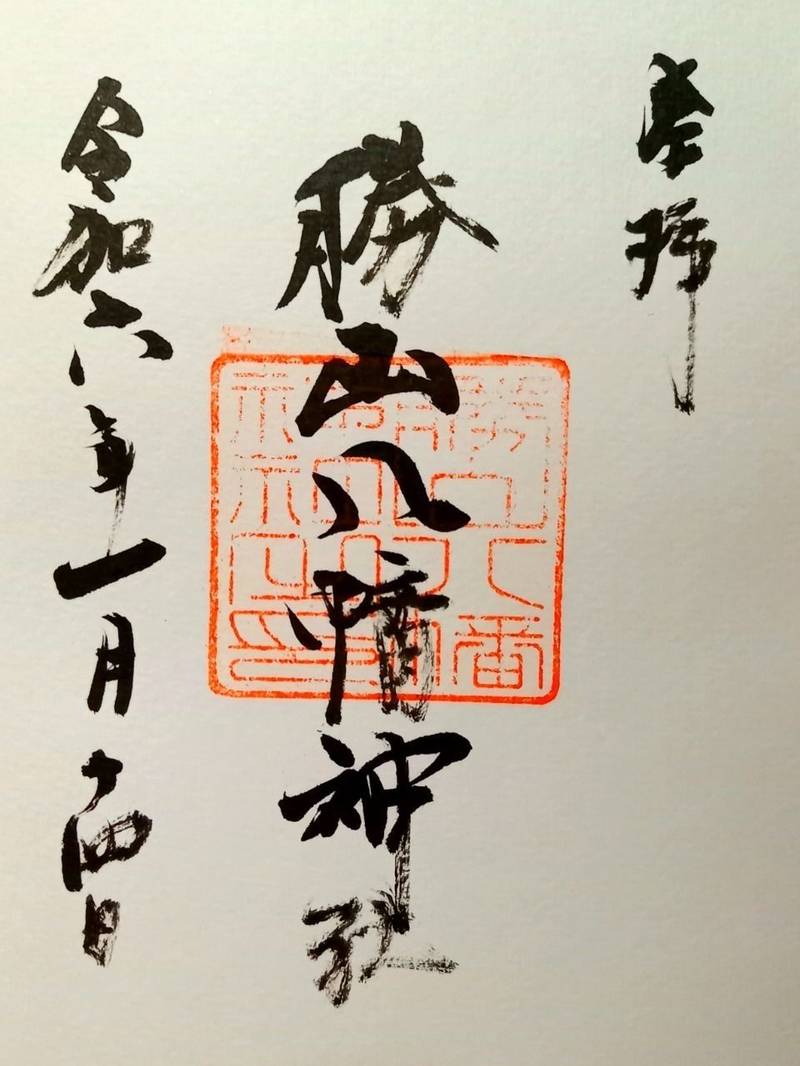 奉拝
勝山八幡神社
令和六年一月十四日